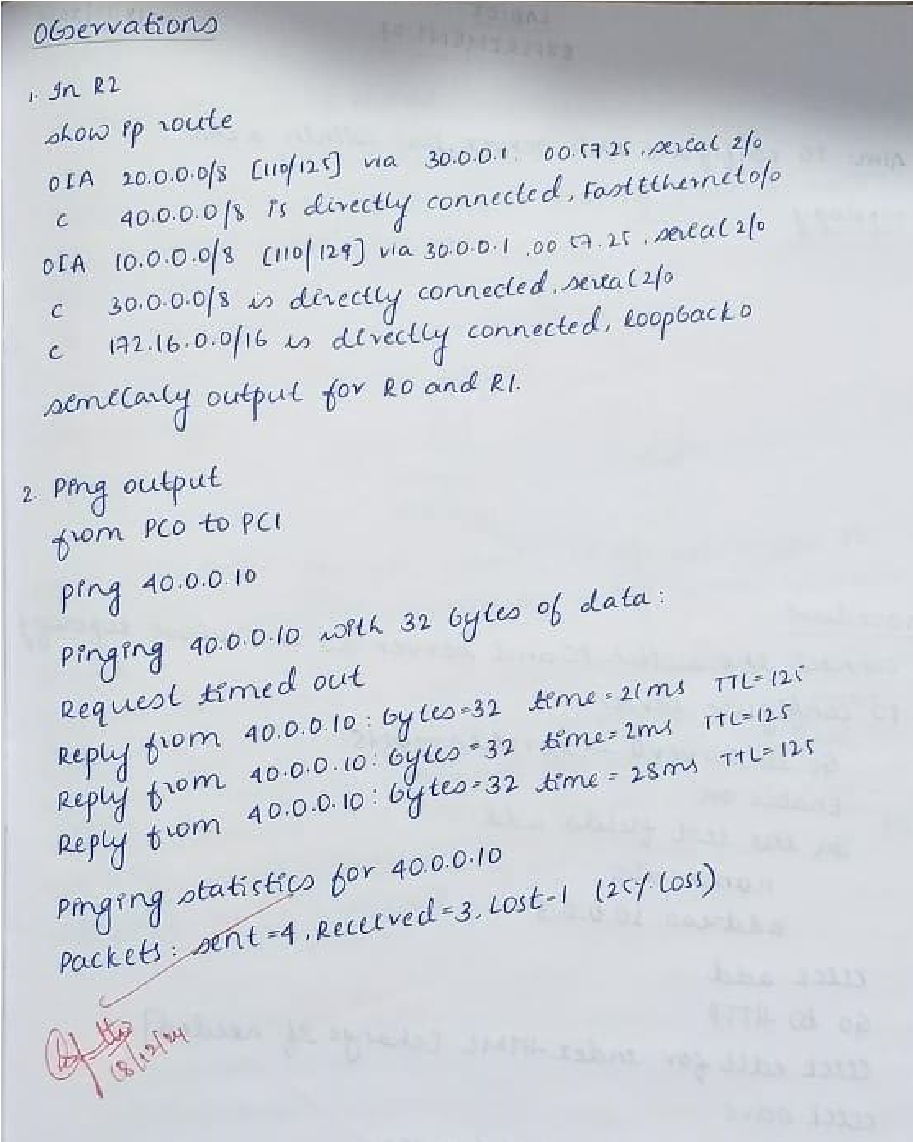 Observations
1. In R2
show ip route
OIA 20.0.0.0/8 [110/125] via 30.0.0.1. 00.57.25, serial 2/0
C 40.0.0.0/8 is directly connected, FastEthernet0/0
OIA 10.0.0.0/8 [110/129] via 30.0.0.1, 00 57.25, serial 2/0
C 30.0.0.0/8 is directly connected, serial 2/0
C 172.16.0.0/16 is directly connected, loopback 0
similarly output for R0 and R1.
2. Ping output
from PC0 to PC1
ping 40.0.0.10
Pinging 40.0.0.10 with 32 bytes of data:
Request timed out
Reply from 40.0.0.10: bytes=32 time=21ms TTL=125
Reply from 40.0.0.10: bytes=32 time=2ms TTL=125
Reply from 40.0.0.10: bytes=32 time=28ms TTL=125
Pinging statistics for 40.0.0.10
Packets: sent=4, Received=3, Lost-1 (25% loss)
18/12/24